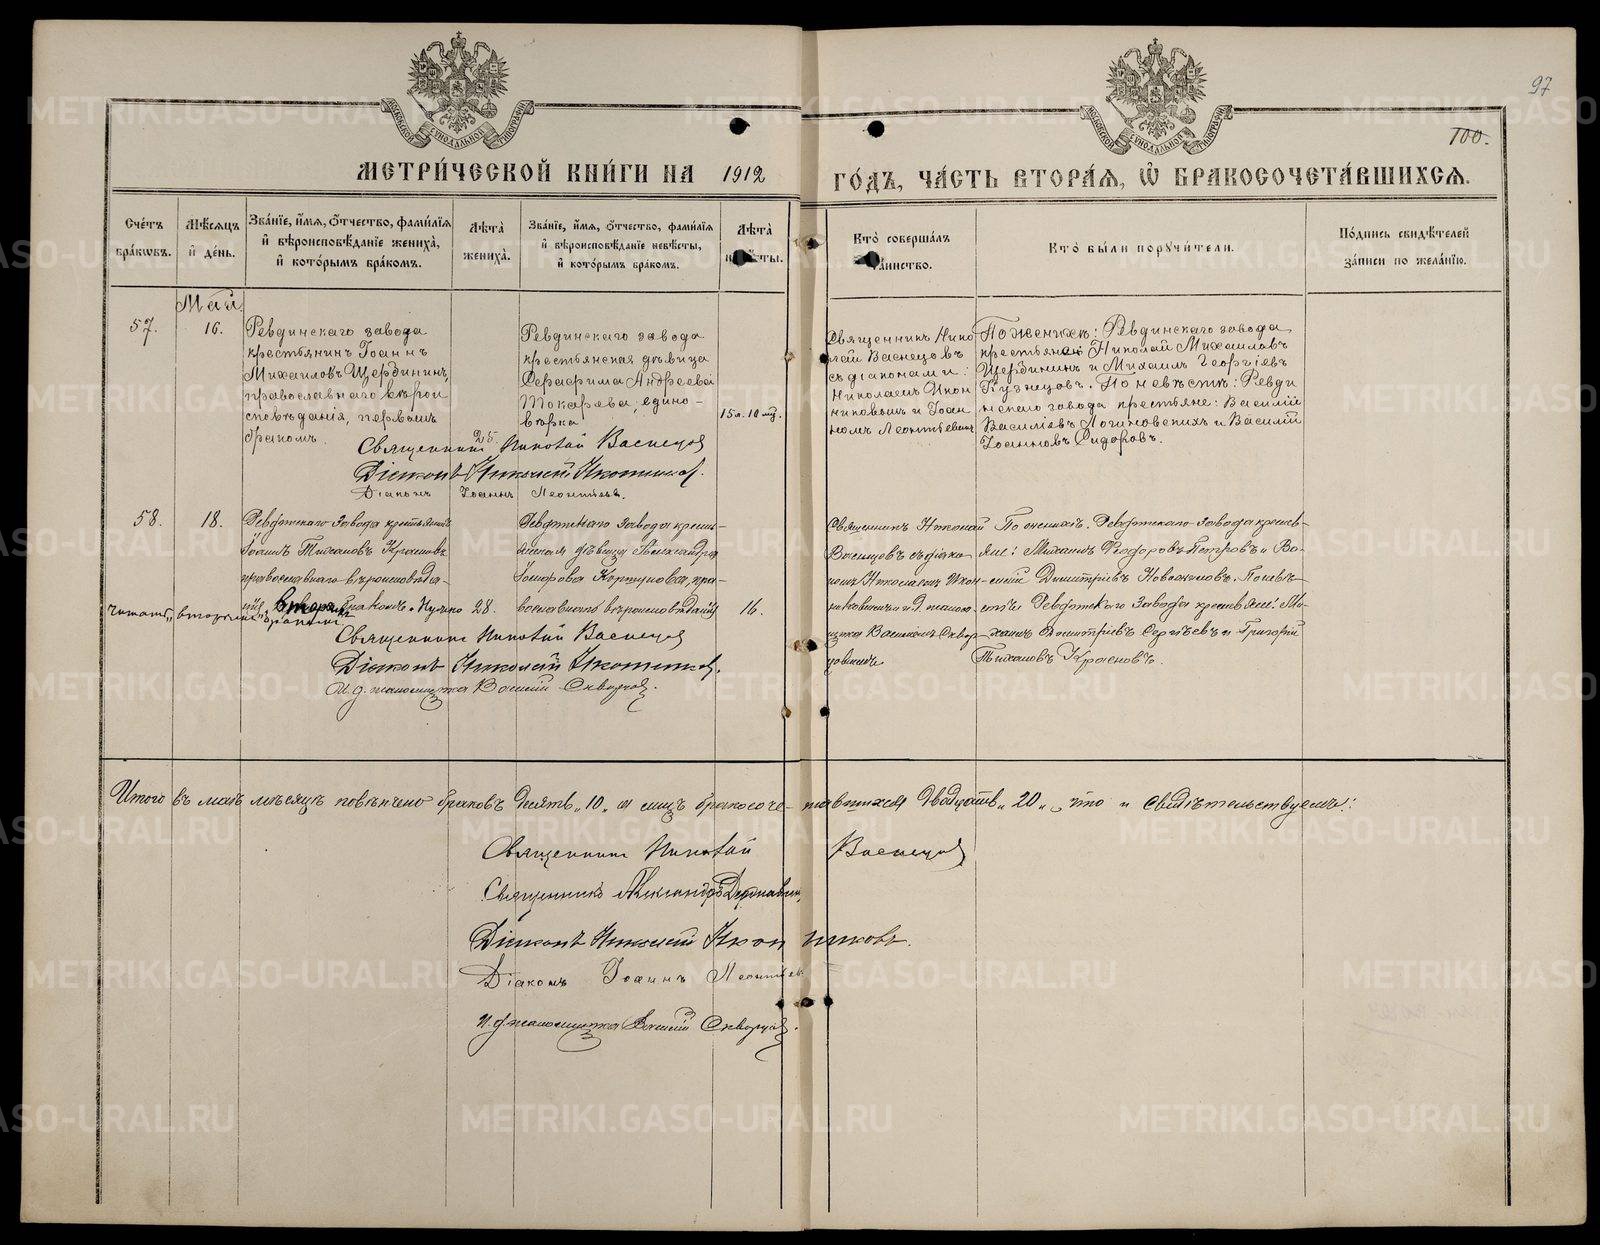 97
100.
МОСКОВСКОЙ СѴНОДАЛЬНОЙ ТИПОГРАФІИ
МОСКОВСКОЙ СѴНОДАЛЬНОЙ ТИПОГРАФІИ
МЕТРИ́ЧЕСКОЙ КНИ́ГИ НА 1912 ГО́ДЪ, ЧА́СТЬ ВТОРА́Я, Ѽ БРАКОСОЧЕТА́ВШИХСЯ.
Сче́тъ бра́кѡвъ.
Мѣ́сяцъ и҆ де́нь.
Зва́нїе, и҆́мя, ѻ҆́тчество, фами́лїя и҆ вѣроисповѣ́данїе жениха̀, и҆ кото́рымъ бра́комъ.
Лѣ́та жениха̀.
Зва́нїе, и҆́мя, ѻ҆́тчество, фами́лїя и҆ вѣроисповѣ́данїе невѣ́сты, и҆ кото́рымъ бра́комъ.
Лѣ́та невѣ́сты.
Кто̀ соверша́лъ та́инство.
Кто̀ бы́ли порꙋчи́тели.
По́дпись свидѣ́телей за́писи по жела́нїю.
Май.
57.
16.
Ревдинскаго завода
крестьянинъ Іоаннъ
Михаиловъ Щербининъ,
православнаго вѣрои
сповѣданія, первымъ
бракомъ.
25.
Ревдинскаго завода
крестьянская дѣвица
Серафима Андреева
Токарева, едино-
вѣрка
15 л. 10 мц.
Священникъ Нико
лай Васнецовъ
съ діаконами:
Николаемъ Икон
никовымъ и Іоан
номъ Леонтьевымъ
По женихѣ: Ревдинскаго завода
крестьяне: Николай Михаиловъ
Щербининъ и Михаилъ Георгіевъ
Кузнецовъ. По невѣстѣ: Ревди
нскаго завода крестьяне: Василій
Васильевъ Логиновскихъ и Василій
Іоанновъ Сидоровъ.
Священникъ Николай Васнецов
Діаконъ Николай Иконников.
Діаконъ Іоаннъ Леонтьевъ.
58.
18.
Ревдинскаго завода крестьянинъ
Іоаннъ Тихановъ Красновъ
православнаго вѣроисповѣда-
нія, бракомъ.
28.
Ревдинскаго завода кресть-
янская дѣвица Александра
православнаго вѣроисповѣданія
16.
Читать „вторымъ“ бракомъ
Священникъ Николай
Васнецовъ съ діако-
номъ Николаемъ Икон-
никовымъ и д. псалом-
щика Василіемъ Сквор-
цовымъ
По женихѣ: Ревдинскаго завода кресть-
яне: Михаилъ Ѳедоровъ Петровъ и Ва-
силій Димитріевъ По невѣ-
стѣ: Ревдинскаго завода крестьяне: Ми-
хаилъ Димитріевъ Сергѣевъ и Григорій
Тихановъ Красновъ.
Священникъ Николай Васнецов
Діаконъ Николай Иконников.
И. д. псаломщика Василій Скворцов.
Итого въ маѣ мѣсяцѣ повѣнчено браковъ десять „10„ а лицъ бракосоче-тавшихся двадцать „20„, что и свидѣтельствуемъ:
Священникъ Николай Васнецов
Священникъ Александръ
Діаконъ Николай Иконниковъ.
Діаконъ Іоаннъ Леонтьев.
И. д. псаломщика Василій Скворцов.
METRIKI.GASO-URAL.RU